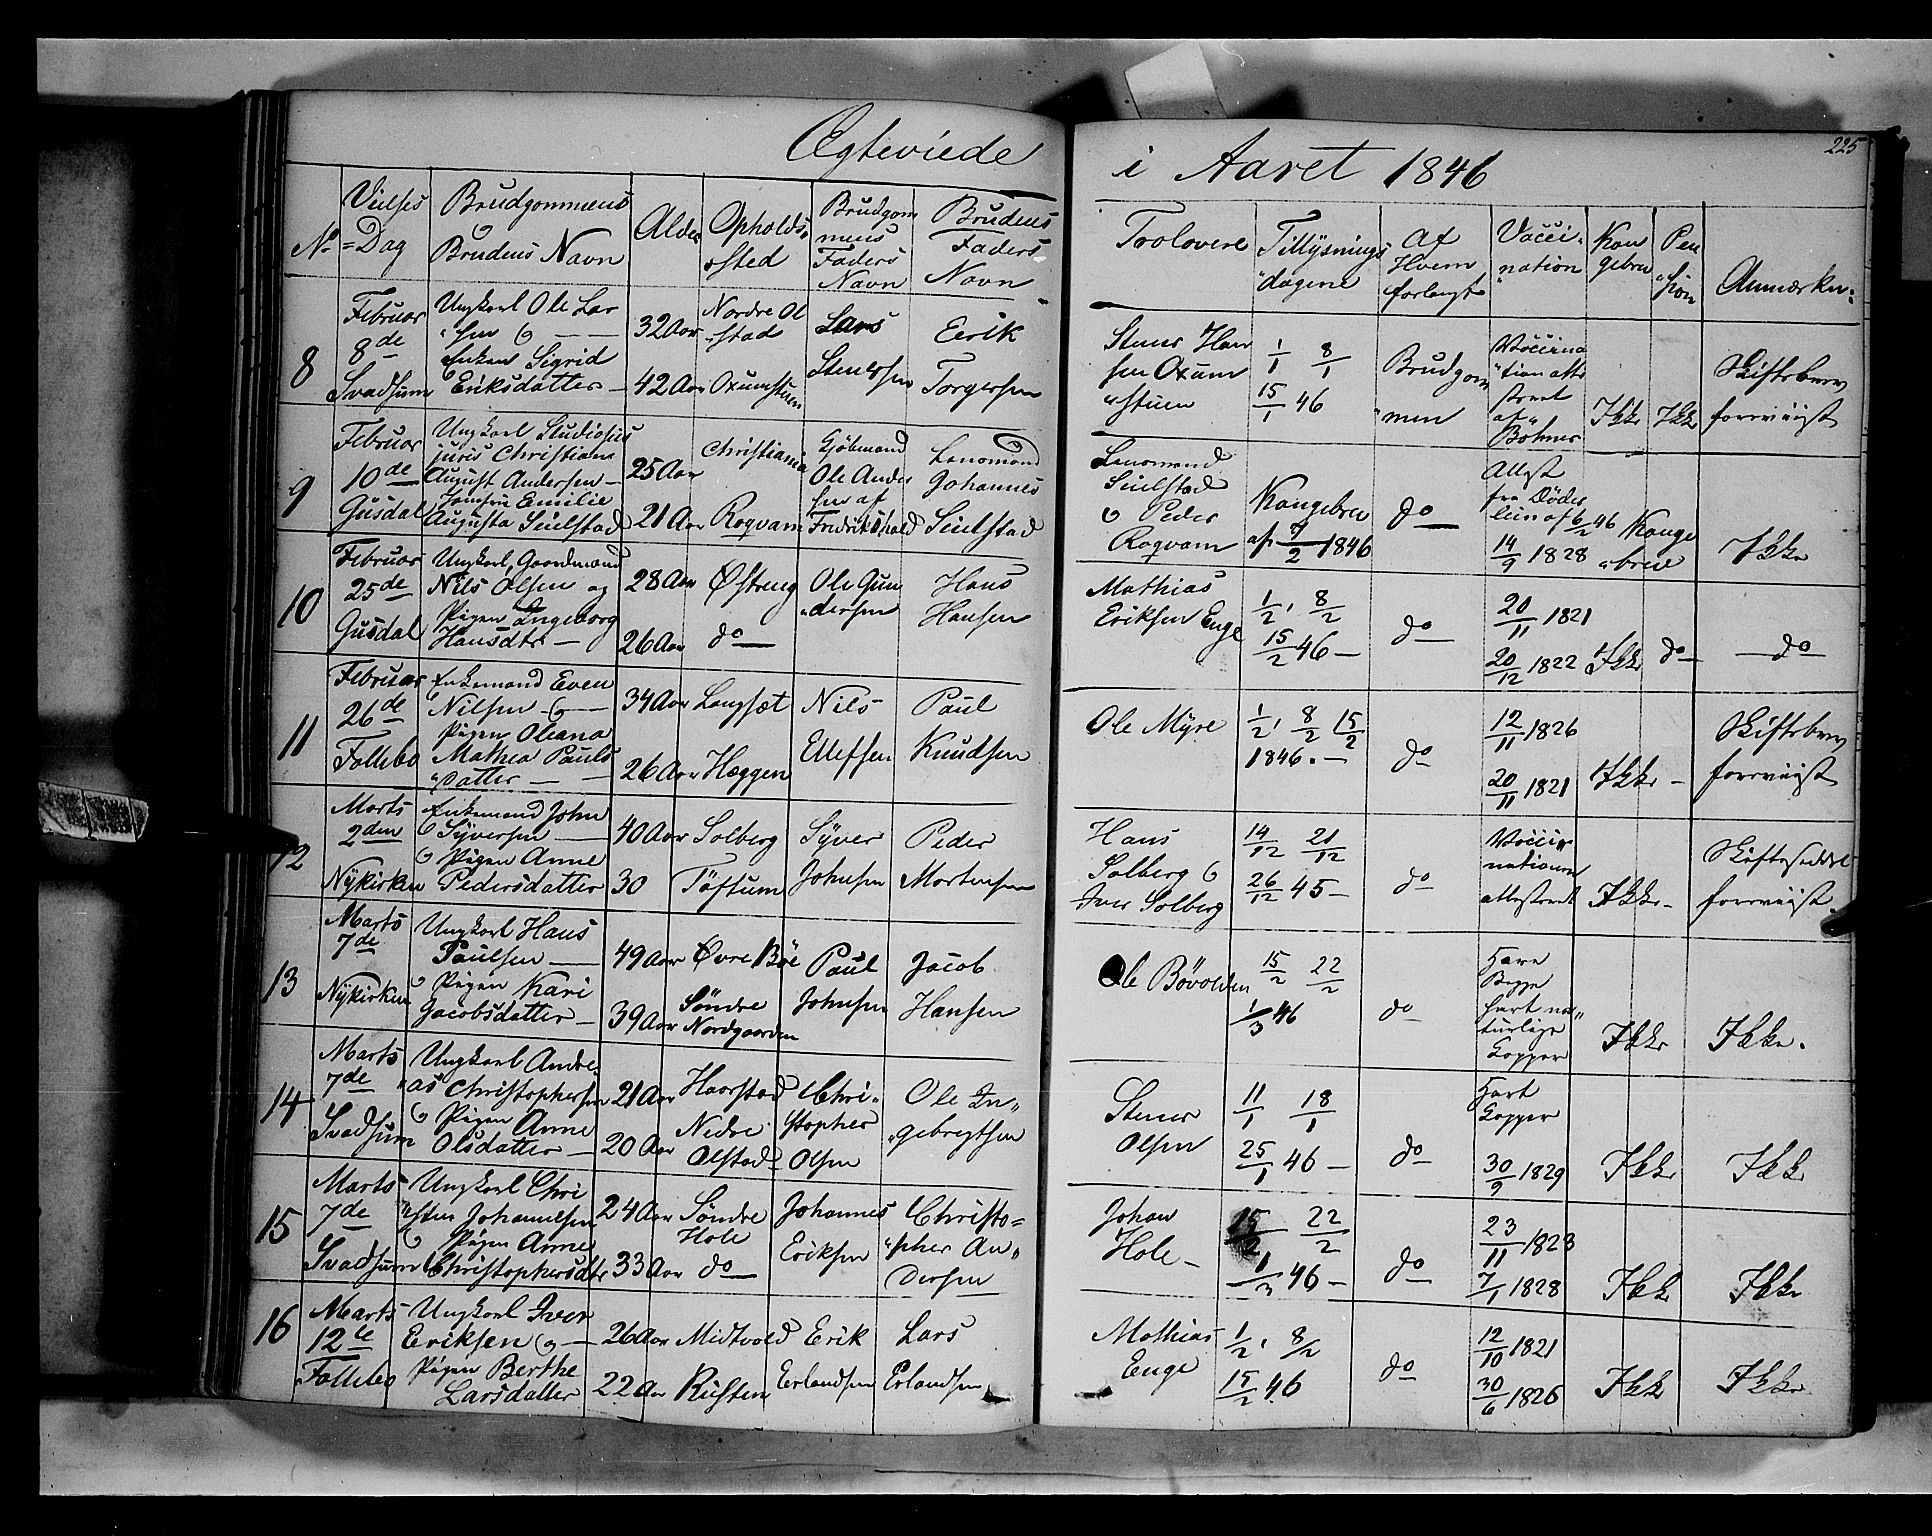 Ægteviede i Aaret 1846
225
No
Vielses
= Dag
Brudgommens
Brudens Navn
Alder
Opholds-
sted
Brudgom
mens
Faders
Navn
Brudens
Faders
Navn
Trolovere
Tillysnings
"dagene
Af
Hvem
forlangt
Vacci-
nation
Kon
gebrev
Pen
"sion
Anmærkn:
8
Februar
8de
Svadsum
Ungkarl Ole Lar
"sen
Enken Sigrid
Eriksdatter
32 Aar
42 Aar
Nordre Ol
"stad
Oxumstuen
Lars
Stenersen
Eerik
Torgersen
Stener Han
sen Oxum
"stuen
1/1 8/1
15/1 46
Brudgom
"men
Vaccina
"tion atte
steret
af
Böhmer
Ikke
Ikke
Skiftebrev
foreviist
9
Februar
10de
Gusdal
Ungkarl Studiosus
juris Christian
August Andersen
Jomfru Emilie
Augusta Seielstad
25 Aar
21 Aar
Christiania
Roqvam
Kjöbmand
Ole Ander
sen af
Fredrikshald
Lensmand
Johannes
Seielstad
Lensmand
Seielstad
Peder
Roqvam
Kongebrev
af 7/2 1846
do
Attest
fra Döder
lein af 6/2 46
14/9 1828
Konge
"brev
Ikke
10
Februar
25de
Gusdal
Ungkarl, Gaardmand
Nils Olsen og
Pigen Ingeborg
Hansdtr
28 Aar
26 Aar
Østreng
do
Ole Gun
"dersen
Hans
Hansen
Mathias
Eriksen Enge
1/2, 8/2
15/2 46
do
20/11 1821
20/12 1822
Ikke
do
do
11
Februar
26de
Follebo
Enkemand Even
Nilsen
Pigen Oleana
Mathea Pauls
"datter
34 Aar
26 Aar
Langsæt
Hæggen
Nils
Ellefsen
Paul
Knudsen
Ole Myre
1/2, 8/2 15/2
1846.
do
12/11 1826
20/11 1821
Ikke
Skiftebrev
foreviist
12
Marts
2den
Nykirken
Enkemand John
Syversen
Pigen Anne
Pedersdatter
40 Aar
30
Solberg
Töftum
Syver
Johnsen
Peder
Mortensen
Hans
Solberg
Iver Solberg
14/12 21/12
26/12 45
do
Vacci
nationen
attesteret
Ikke
Skifteseddel
foreviist
13
Marts
7de
Nykirken
Ungkarl Hans
Paulsen
Pigen Kari
Jacobsdatter
49 Aar
39 Aar
Øvre Böe
Söndre
Nordgaarden
Paul
Johnsen
Jacob
Hansen
Ole Bövolden
15/2 22/2
1/3 46
do
Have
Begge
havt na"
turlige
Kopper
Ikke
Ikke.
14
Marts
7de
Svadsum
Ungkarl Andre
"as Christophersen
Pigen Anne
Olsdatter
21 Aar
20 Aar
Haarstad
Nedre
Olstad
Chri-
stopher
Olsen
Ole In"
"gebregtsen
Stener
Olsen
11/1 18/1
25/1 46
do
Havt
Kopper
30/9 1829
Ikke
Ikke
15
Marts
7de
Svadsum
Ungkarl Chri
"sten Johannesen
Pigen Anne
Christophersdtr
24 Aar
33 Aar
Söndre
Hole
do
Johannes
Eriksen
Christo=
"pher An"
dersen
Johan
Hole
15/2 22/2
1/3 46
do
23/11 1823
7/1 1828
Ikke
Ikke
16
Marts
12te
Follebo
Ungkarl Iver
Eriksen og
Pigen Berthe
Larsdatter
26 Aar
22 Aar
Midtvold
Rusten
Erik
Eerlandsen
Lars
Erlandsen
Mathias
Enge
1/2, 8/2
15/2 46
do
12/10 1821
30/6 1826
Ikke
Ikke